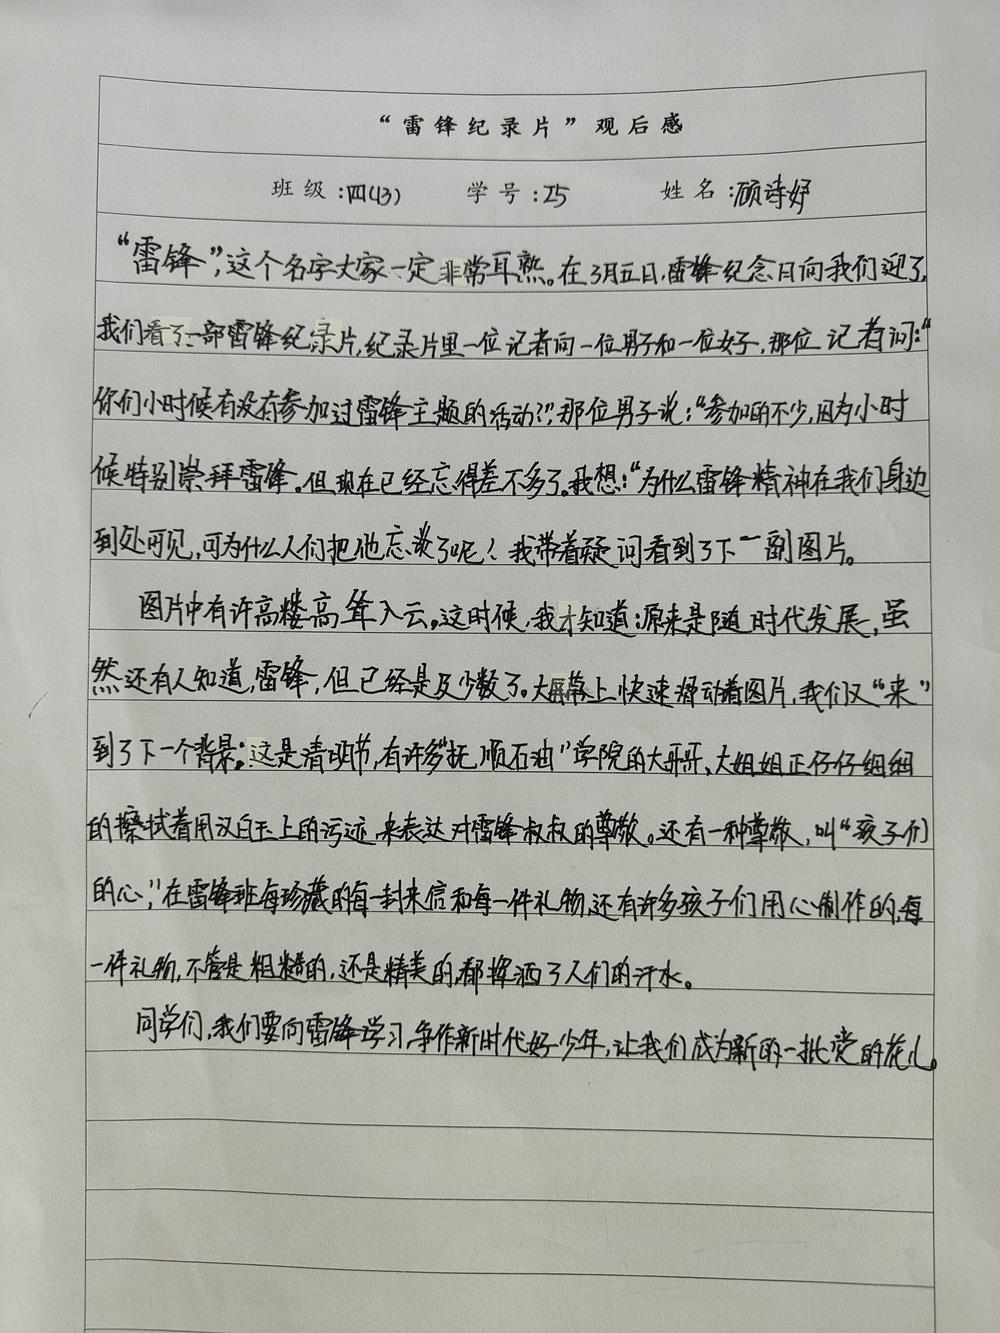 “雷锋纪录片”观后感
班级:四(13) 学号:25 姓名:顾诗妤
“雷锋”,这个名字大家一定非常耳熟。在3月五日,雷锋纪念日向我们迎了,
我们看了一部雷锋纪录片,纪录片里一位记者问一位男子和一位女子,那位记者问:“
你们小时候有没有参加过雷锋主题的活动?”,那位男子说:“参加的不少,因为小时
候特别崇拜雷锋。但现在已经忘得差不多了。我想:“为什么雷锋精神在我们身边
到处可见,可为什么人们把他忘淡了呢!我带着疑问看到了下一副图片。
图片中有许高楼高耸入云。这时候,我才知道:原来是随时代发展,虽
然还有人知道,雷锋,但已经是及少数了。大屏幕上快速滑动着图片,我们又“来”
到了下一个背景:这是清明节,有许多“抚顺石油”学院的大哥哥、大姐姐正仔仔细细
的擦拭着用汉白玉上的污迹,来表达对雷锋叔叔的尊敬。还有一种尊敬,叫“孩子们
的心”,在雷锋班每珍藏的每一封来信和每一件礼物,还有许多孩子们用心制作的,每
一件礼物,不管是粗糙的,还是精美的,都挥洒了人们的汗水。
同学们,我们要向雷锋学习,争作新时代好少年,让我们成为新的一批党的花儿。